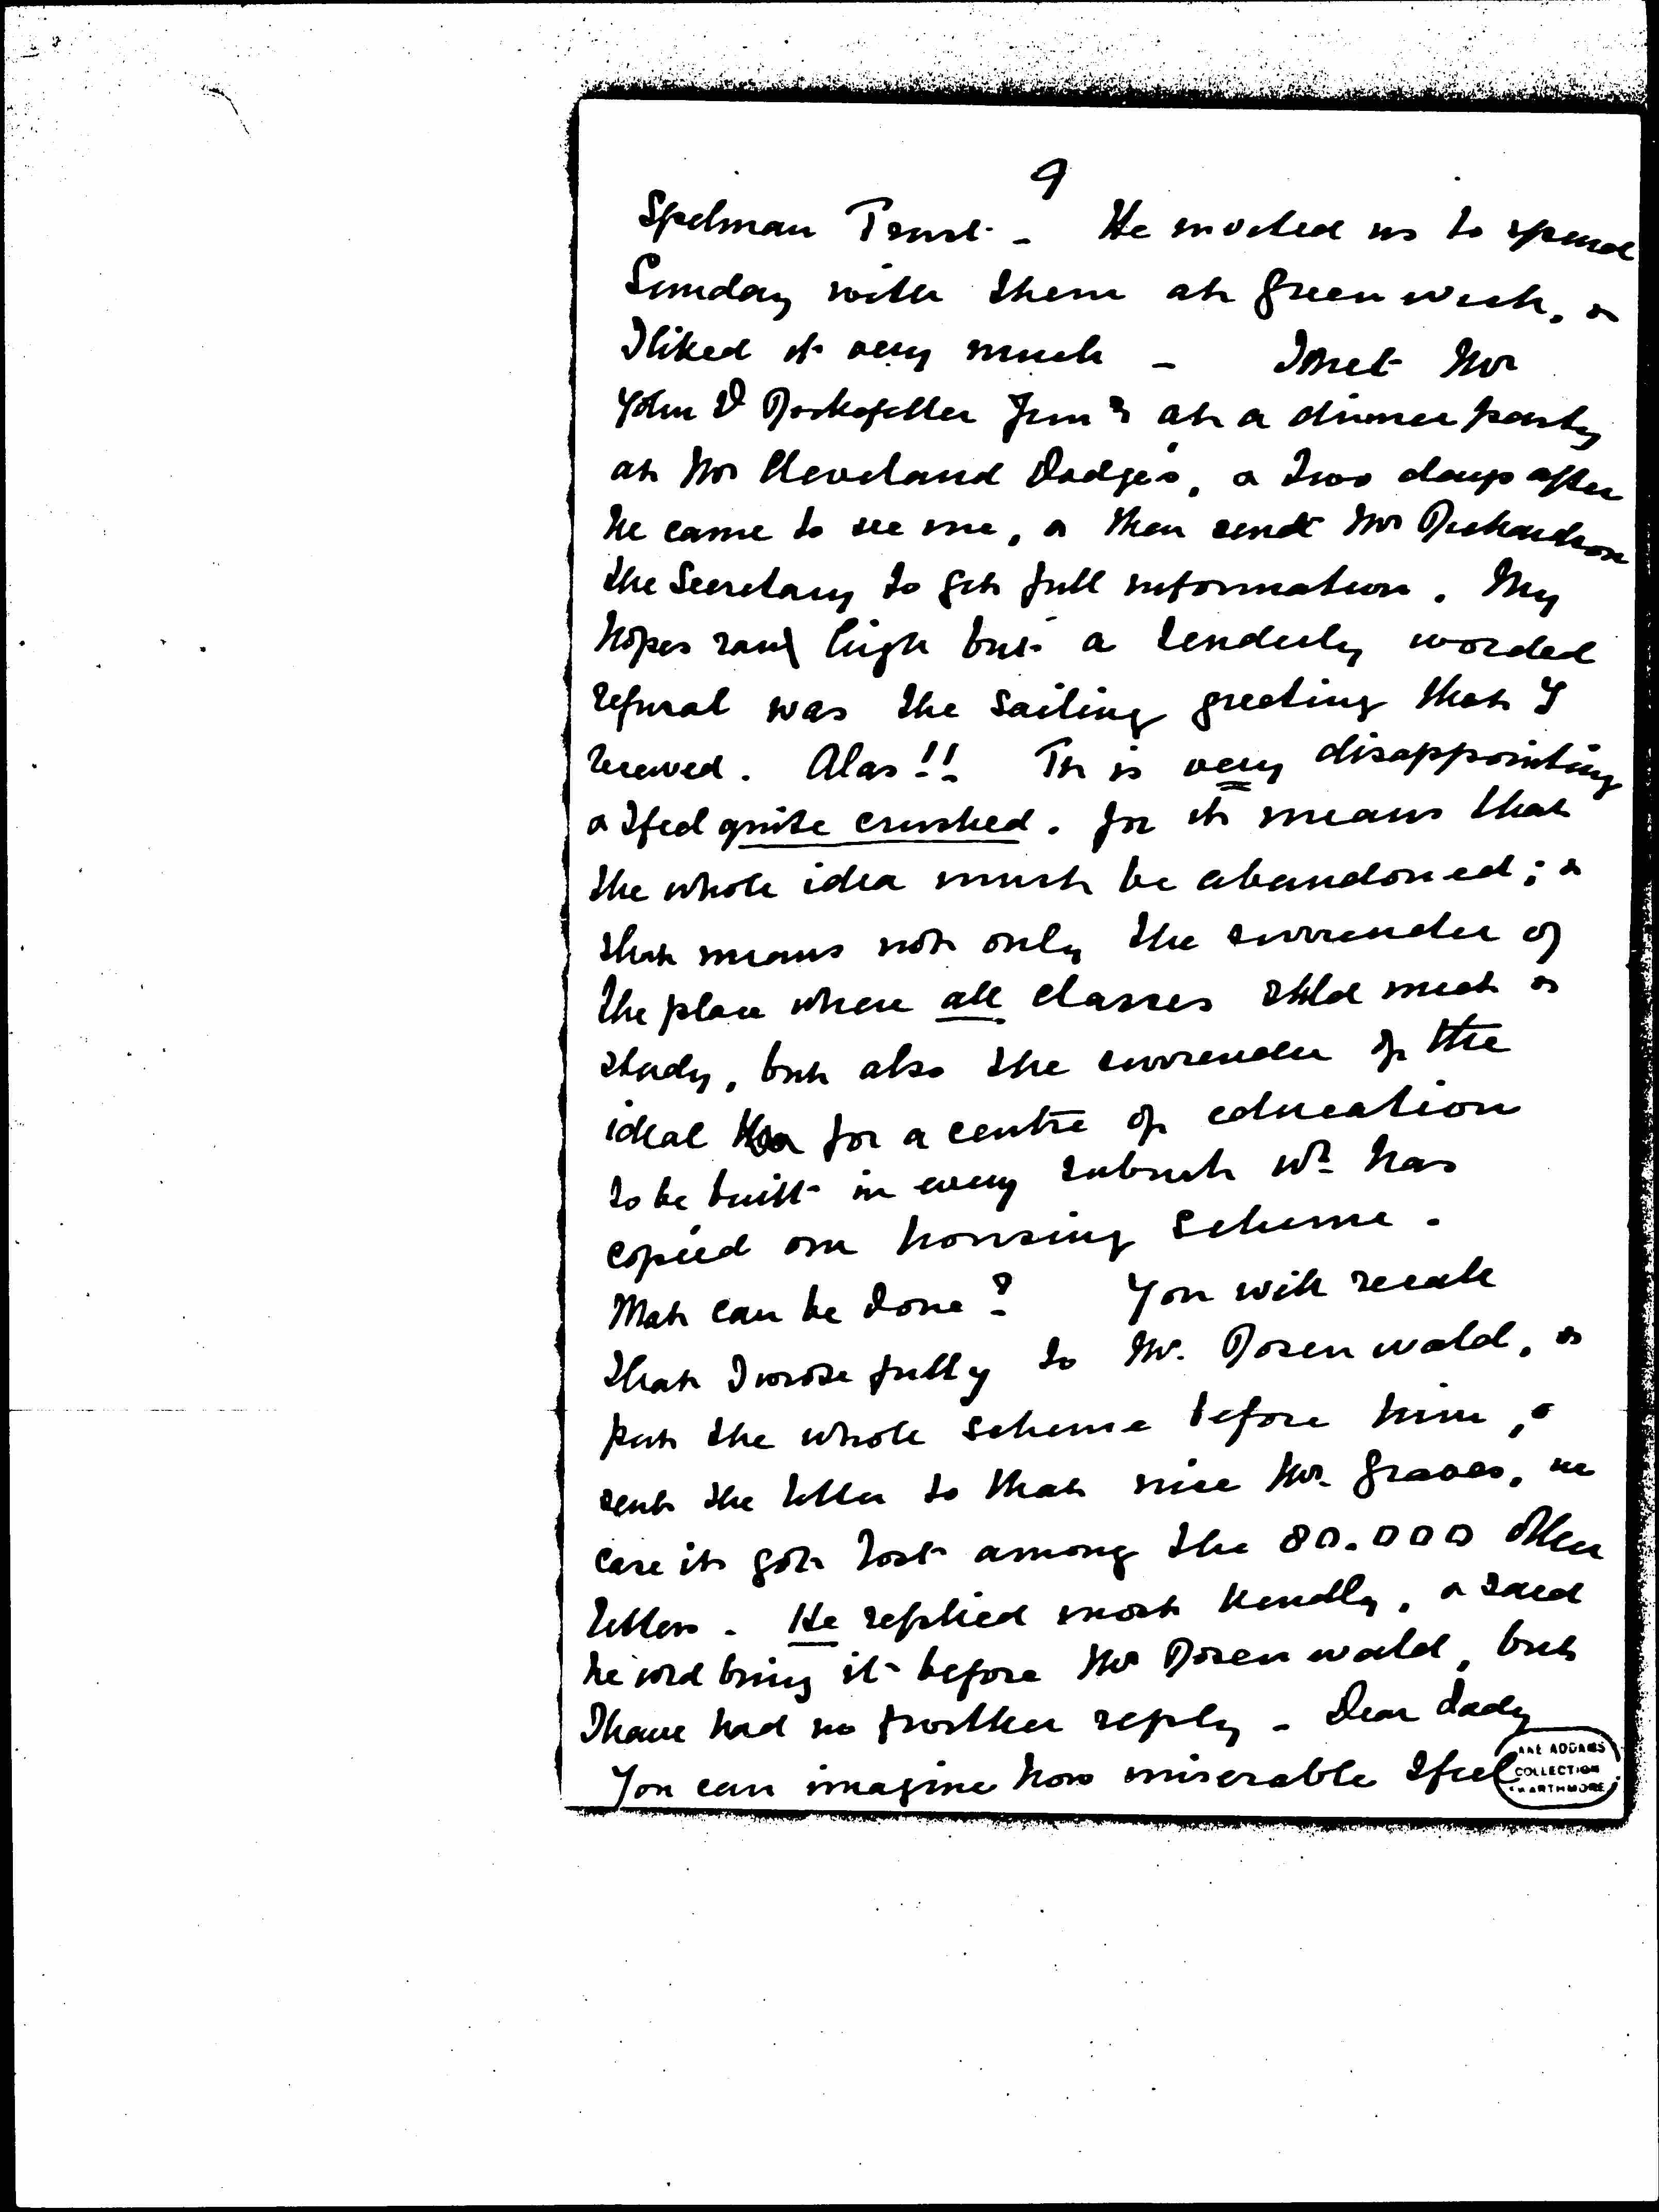 9
Spelman Trust - He invited us to spend
Sunday with them at Greenwich, &
I liked it very much - I met Mr
John D Rockefeller Junr at a dinner party
at Mr Cleveland Dodge's, & two days after
he came to see me, & then sent Mr Richardson
the Secretary to get full information. My
hopes ran high but a tenderly worded
refusal was the sailing greeting that I
received. Alas!! It is very disappointing
& I feel quite crushed. for it means that
the whole idea must be abandoned; &
that means not only the surrender of
the place where all classes shld meet &
study, but also the surrender of the
ideal for a centre of education
to be built in every suburb wh has
copied our housing scheme.
What can be done? You will recall
that I wrote fully to Mr. Rosenwald, &
put the whole scheme before him, &
sent the letter to that nice Mr Graves, in
case it got lost among the 80.000 other
letters. He replied most kindly, & said
he wld bring it before Mr Rosenwald, but
I have had no further reply - Dear Lady
You can imagine how miserable I feel
JANE ADDAMS
COLLECTION
SWARTHMORE